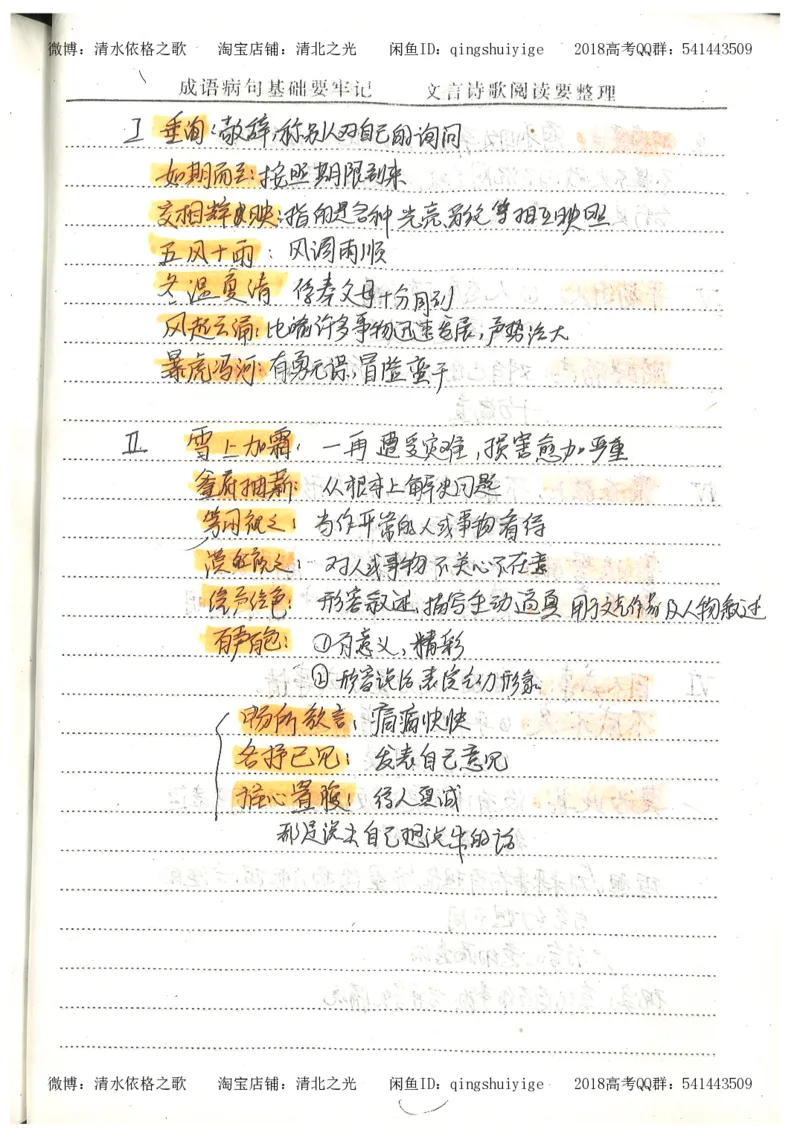 微博：清水依格之歌 淘宝店铺：清北之光 闲鱼ID：qingshuiyige 2018高考QQ群：541443509
成语病句基础要牢记 文言诗歌阅读要整理
I 垂询：敬辞，称别人对自己的询问
如期而至：按照期限到来
交相辉映：指的是各种光亮、彩色等相互映照
五风十雨：风调雨顺
冬温夏凊 侍奉父母十分周到
风起云涌：比喻许多事物迅速发展，声势浩大
暴虎冯河：有勇无谋，冒险蛮干
II 雪上加霜：一再遭受灾难，损害愈加严重
釜底抽薪：从根本上解决问题
等闲视之：当作平常的人或事物看待
漠然视之：对人或事物不关心不在意
绘声绘色：形容叙述、描写生动逼真 用于文艺作品及人物叙述
有声有色：①有意义，精彩
②形容说话、表演生动形象
畅所欲言：痛痛快快
各抒己见：发表自己意见
推心置腹：待人真诚
都是说出自己想说的话
微博：清水依格之歌 淘宝店铺：清北之光 闲鱼ID：qingshuiyige 2018高考QQ群：541443509